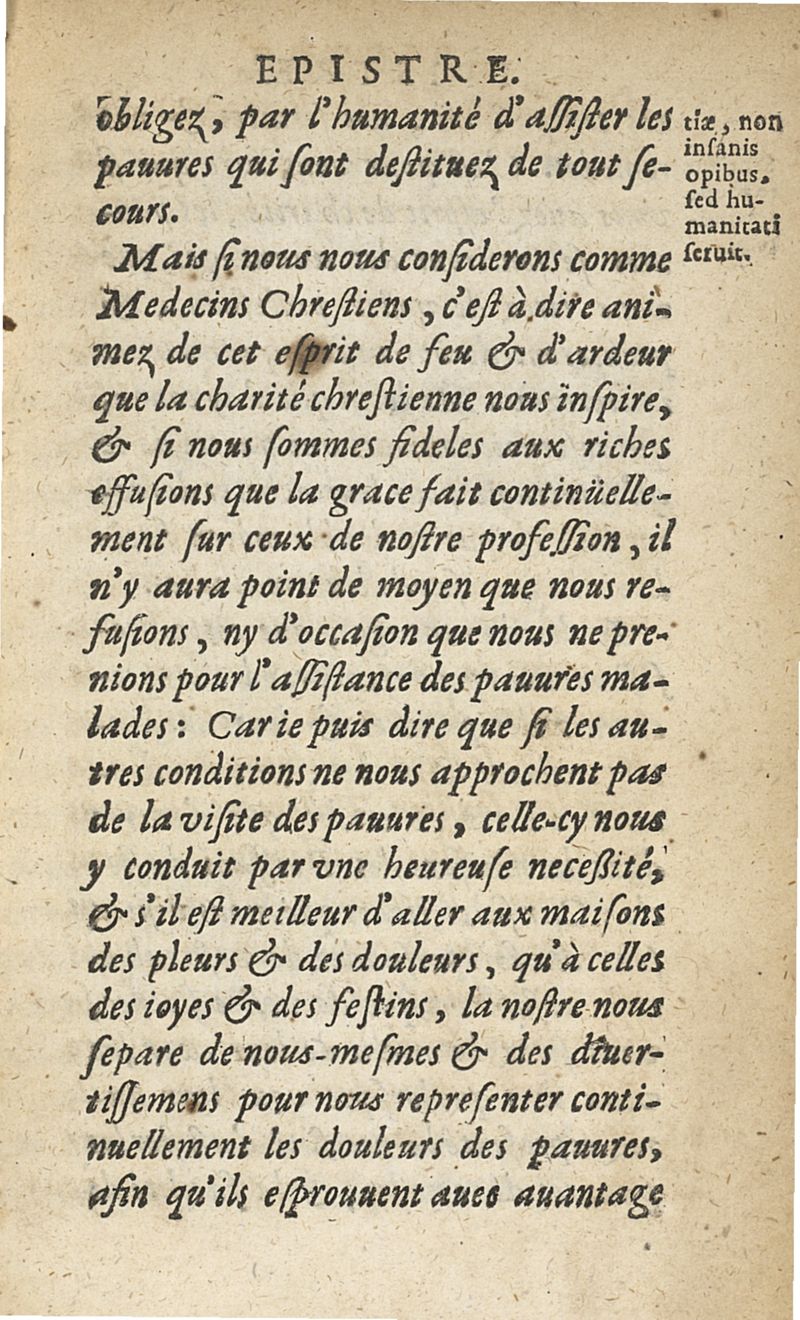 EPISTRE.
obligez, par l'humanité d'aſſiſter les
pauures qui ſont deſtituez de tout ſe-
cours.
Mais ſi nous nous conſiderons comme
Medecins Chreſtiens, c'eſt à dire ani-
mez de cet eſprit de feu & d'ardeur
que la charité chreſtienne nous inſpire,
& ſi nous ſommes fideles aux riches
effuſions que la grace fait continüelle-
ment ſur ceux de noſtre profeſſion, il
n'y aura point de moyen que nous re-
fuſions, ny d'occaſion que nous ne pre-
nions pour l'aſſiſtance des pauures ma-
lades: Car ie puis dire que ſi les au-
tres conditions ne nous approchent pas
de la viſite des pauures, celle-cy nous
y conduit par vne heureuſe neceßité,
& s'il eſt meilleur d'aller aux maiſons
des pleurs & des douleurs, qu'à celles
des ioyes & des feſtins, la noſtre nous
ſepare de nous-meſmes & des diuer-
tiſſemens pour nous repreſenter conti-
nuellement les douleurs des pauures,
afin qu'ils eſprouuent auec auantage
tiæ, non
inſanis
opibus.
ſed hu-
manitati
ſeruit.